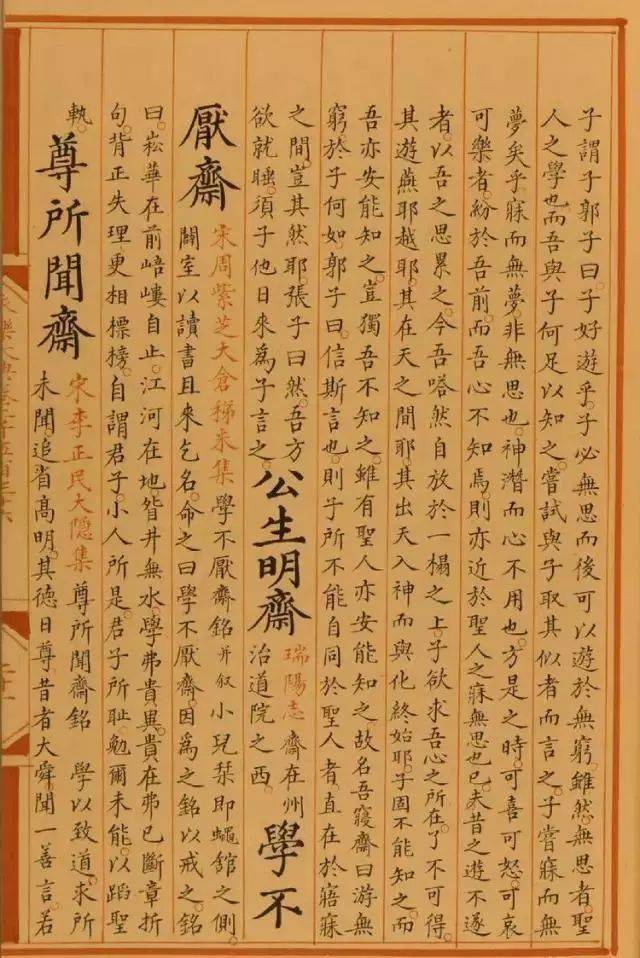 子謂子郭子曰子好遊乎子必無思而後可以遊於無窮雖然無思者聖
人之學也而吾與子何足以知之嘗試與子取其似者而言之子嘗寐而無
夢矣乎寐而無夢非無思也神潛而心不用也方是之時可喜可怒可哀
可樂者紛於吾前而吾心不知焉則亦近於聖人之寐無思也已夫昔之遊不遂
者以吾之思累之今吾嗒然自放於一榻之上子欲求吾心之所在了不可得
其遊燕耶越耶其在天之間耶其出天入神而與化終始耶子固不能知之而
吾亦安能知之豈獨吾不知之雖有聖人亦安能知之故名吾寢齋曰游無
窮於子何如郭子曰信斯言也則子所不能自同於聖人者直在於寤寐
之間豈其然耶張子曰然吾方
欲就睡須子他日來為子言之
公生明齋
瑞陽志齋在州
治道院之西
學不
厭齋
宋周紫芝大倉稊米集學不厭齋銘并叙小兒栞即蠅舘之側
闢室以讀書且來乞名命之曰學不厭齋因為之銘以戒之銘
曰崧華在前嶁自止江河在地眢井無水學弗貴異貴在弗已斷章折
句背正失理更相標榜自謂君子小人所是君子所恥勉爾未能以蹈聖
執
尊所聞齋
宋李正民大隱集尊所聞齋銘 學以致道求所
未聞追省高明其德日尊昔者大舜聞一善言若